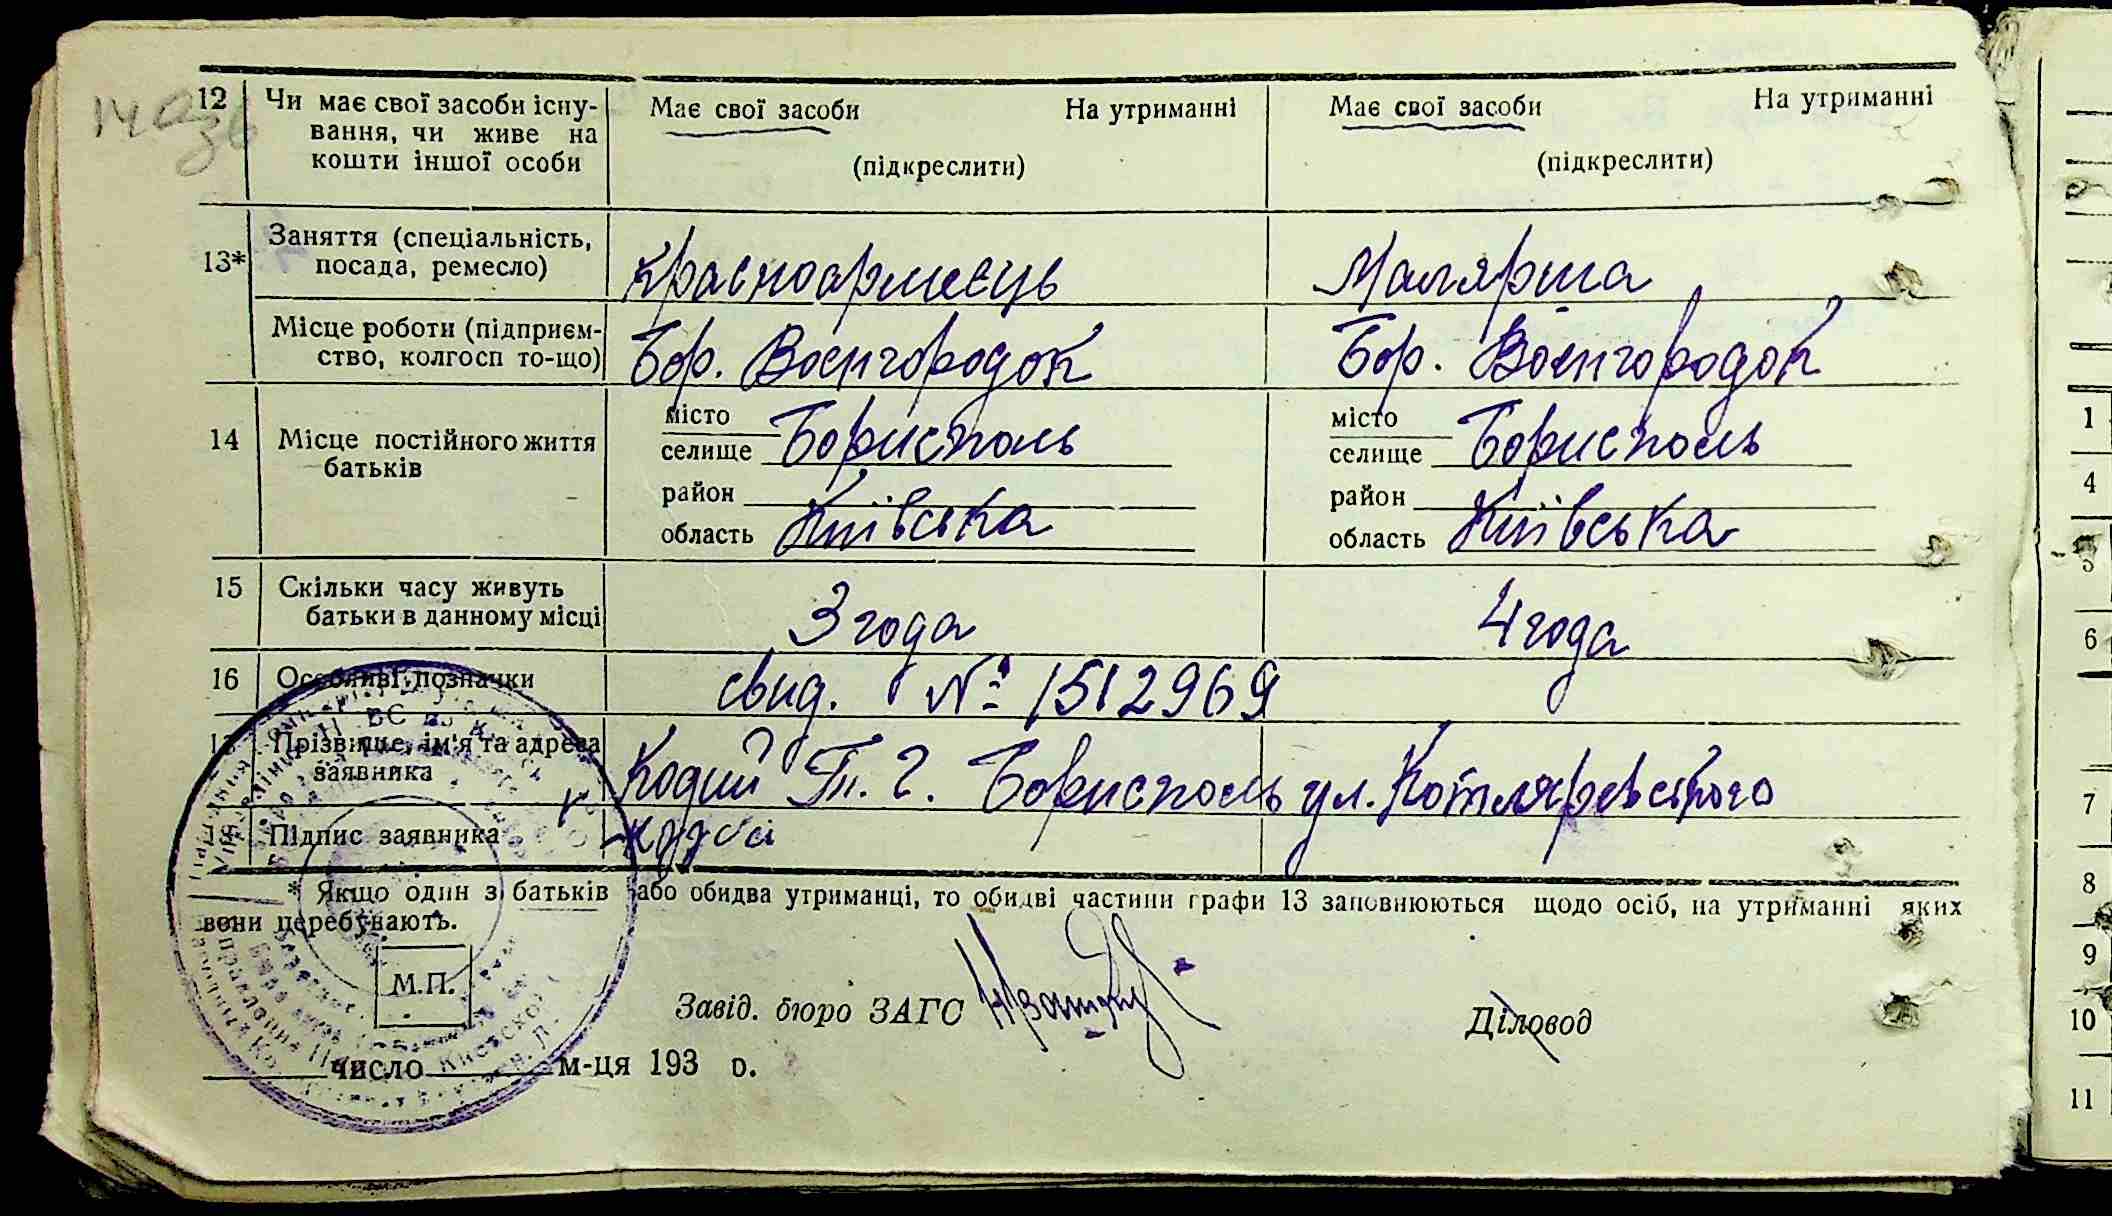 12 Чи має свої засоби існу- Має свої засоби На утриманні Має свої засоби На утриманні
вання, чи живе на
кошти іншої особи (підкреслити) (підкреслити)
13* Заняття (спеціальність,
посада, ремесло) Красноармеєць Малярша
Місце роботи (підприєм-
ство, колгосп то-що) Бор. Воєнгородок Бор. Воєнгородок
місто місто
14 Місце постійного життя селище Борисполь селище Борисполь
батьків
район район
область Київська область Київська
15 Скільки часу живуть
батьки в данному місці 3 года 4 года
16 Особливі позначки свид. № 1512969
17 Прізвище, ім'я та адреса
заявника Кодий Т. Г. Борисполь ул. Котляревского
18 Підпис заявника
* Якщо один з батьків або обидва утриманці, то обидві частини графи 13 заповнюються щодо осіб, на утриманні яких
вони перебувають.
М.П.
Завід. бюро ЗАГС Діловод
число м-ця 193 р.
1
4
5
6
7
8
9
10
11